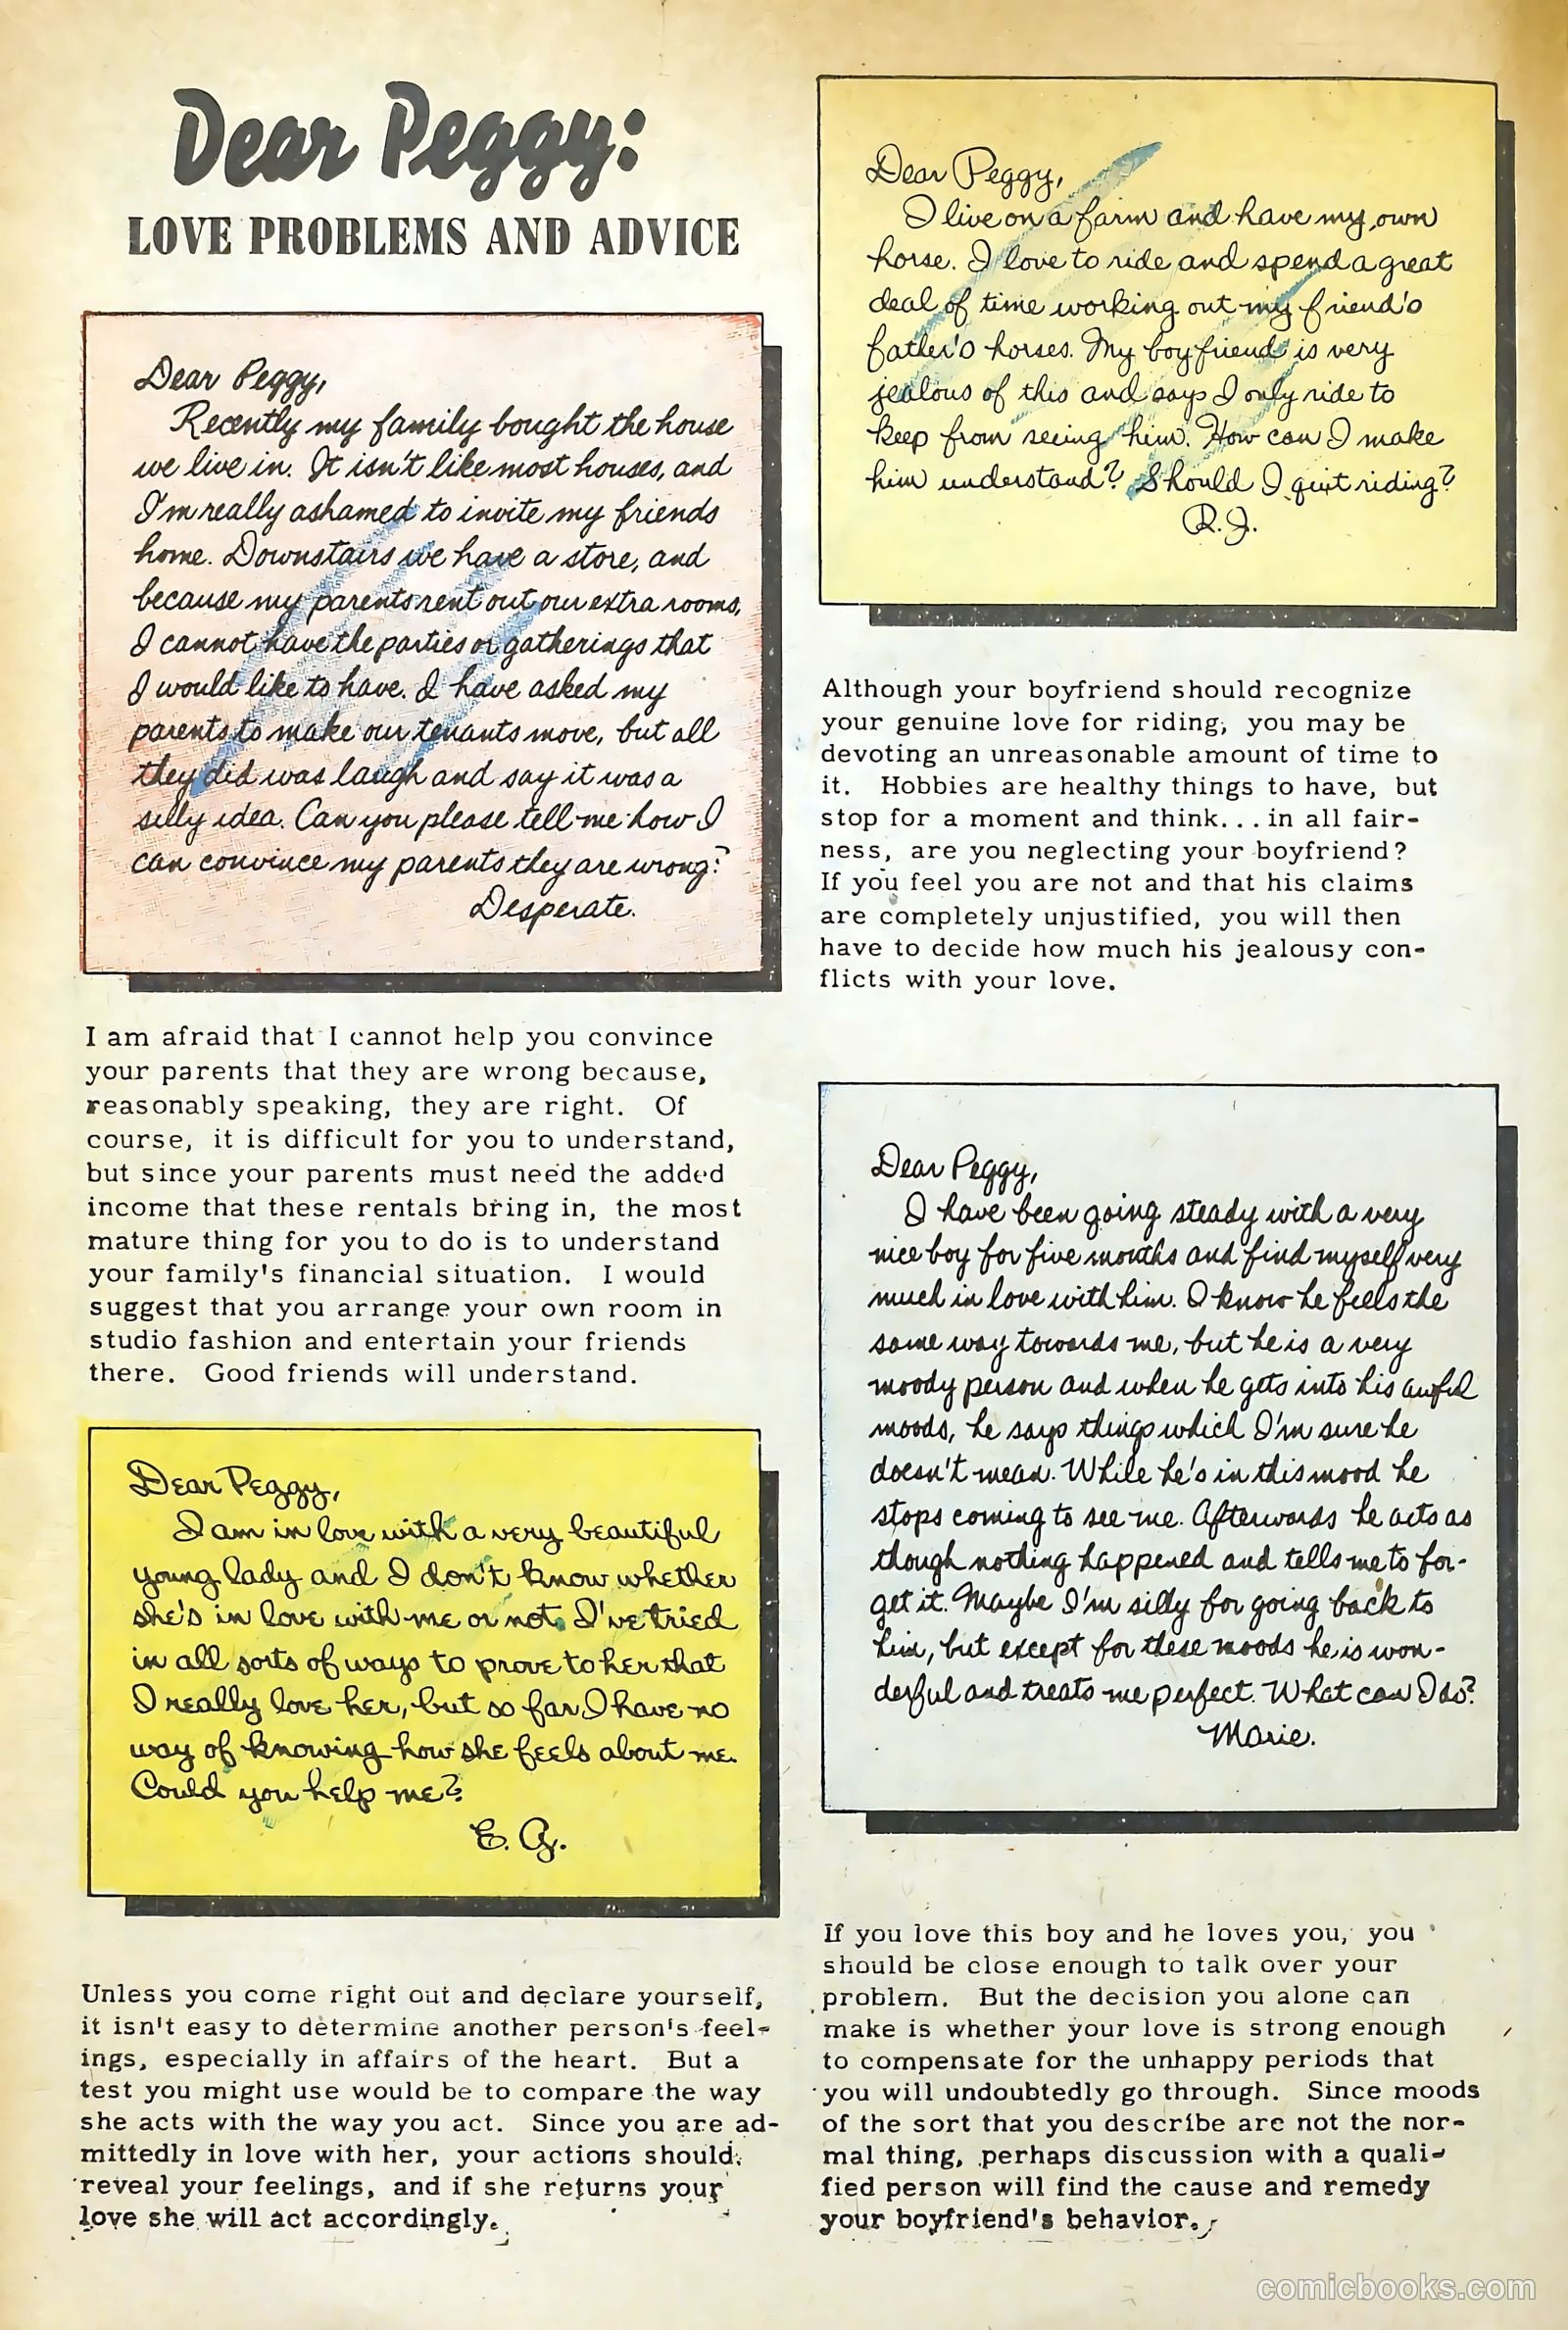 Dear Peggy:
LOVE PROBLEMS AND ADVICE
Dear Peggy,
Recently my family bought the house
we live in. It isn't like most houses, and
I'm really ashamed to invite my friends
home. Downstairs we have a store, and
because my parents rent out our extra rooms,
I cannot have the parties or gatherings that
I would like to have. I have asked my
parents to make our tenants move, but all
they did was laugh and say it was a
silly idea. Can you please tell me how I
can convince my parents they are wrong?
Desperate.
I am afraid that I cannot help you convince
your parents that they are wrong because,
reasonably speaking, they are right. Of
course, it is difficult for you to understand,
but since your parents must need the added
income that these rentals bring in, the most
mature thing for you to do is to understand
your family's financial situation. I would
suggest that you arrange your own room in
studio fashion and entertain your friends
there. Good friends will understand.
Dear Peggy,
I am in love with a very beautiful
young lady and I don't know whether
she's in love with me or not. I've tried
in all sorts of ways to prove to her that
I really love her, but so far I have no
way of knowing how she feels about me.
Could you help me?
E. G.
Unless you come right out and declare yourself,
it isn't easy to determine another person's feel-
ings, especially in affairs of the heart. But a
test you might use would be to compare the way
she acts with the way you act. Since you are ad-
mittedly in love with her, your actions should
reveal your feelings, and if she returns your
love she will act accordingly.
Dear Peggy,
I live on a farm and have my own
horse. I love to ride and spend a great
deal of time working out my friend's
father's horses. My boyfriend is very
jealous of this and says I only ride to
keep from seeing him. How can I make
him understand? Should I quit riding?
R. J.
Although your boyfriend should recognize
your genuine love for riding, you may be
devoting an unreasonable amount of time to
it. Hobbies are healthy things to have, but
stop for a moment and think... in all fair-
ness, are you neglecting your boyfriend?
If you feel you are not and that his claims
are completely unjustified, you will then
have to decide how much his jealousy con-
flicts with your love.
Dear Peggy,
I have been going steady with a very
nice boy for five months and find myself very
much in love with him. I know he feels the
same way towards me, but he is a very
moody person and when he gets into his awful
moods, he says things which I'm sure he
doesn't mean. While he's in this mood he
stops coming to see me. Afterwards he acts as
though nothing happened and tells me to for-
get it. Maybe I'm silly for going back to
him, but except for these moods he is won-
derful and treats me perfect. What can I do?
Marie.
If you love this boy and he loves you, you
should be close enough to talk over your
problem. But the decision you alone can
make is whether your love is strong enough
to compensate for the unhappy periods that
you will undoubtedly go through. Since moods
of the sort that you describe are not the nor-
mal thing, perhaps discussion with a quali-
fied person will find the cause and remedy
your boyfriend's behavior.
comicbooks.com